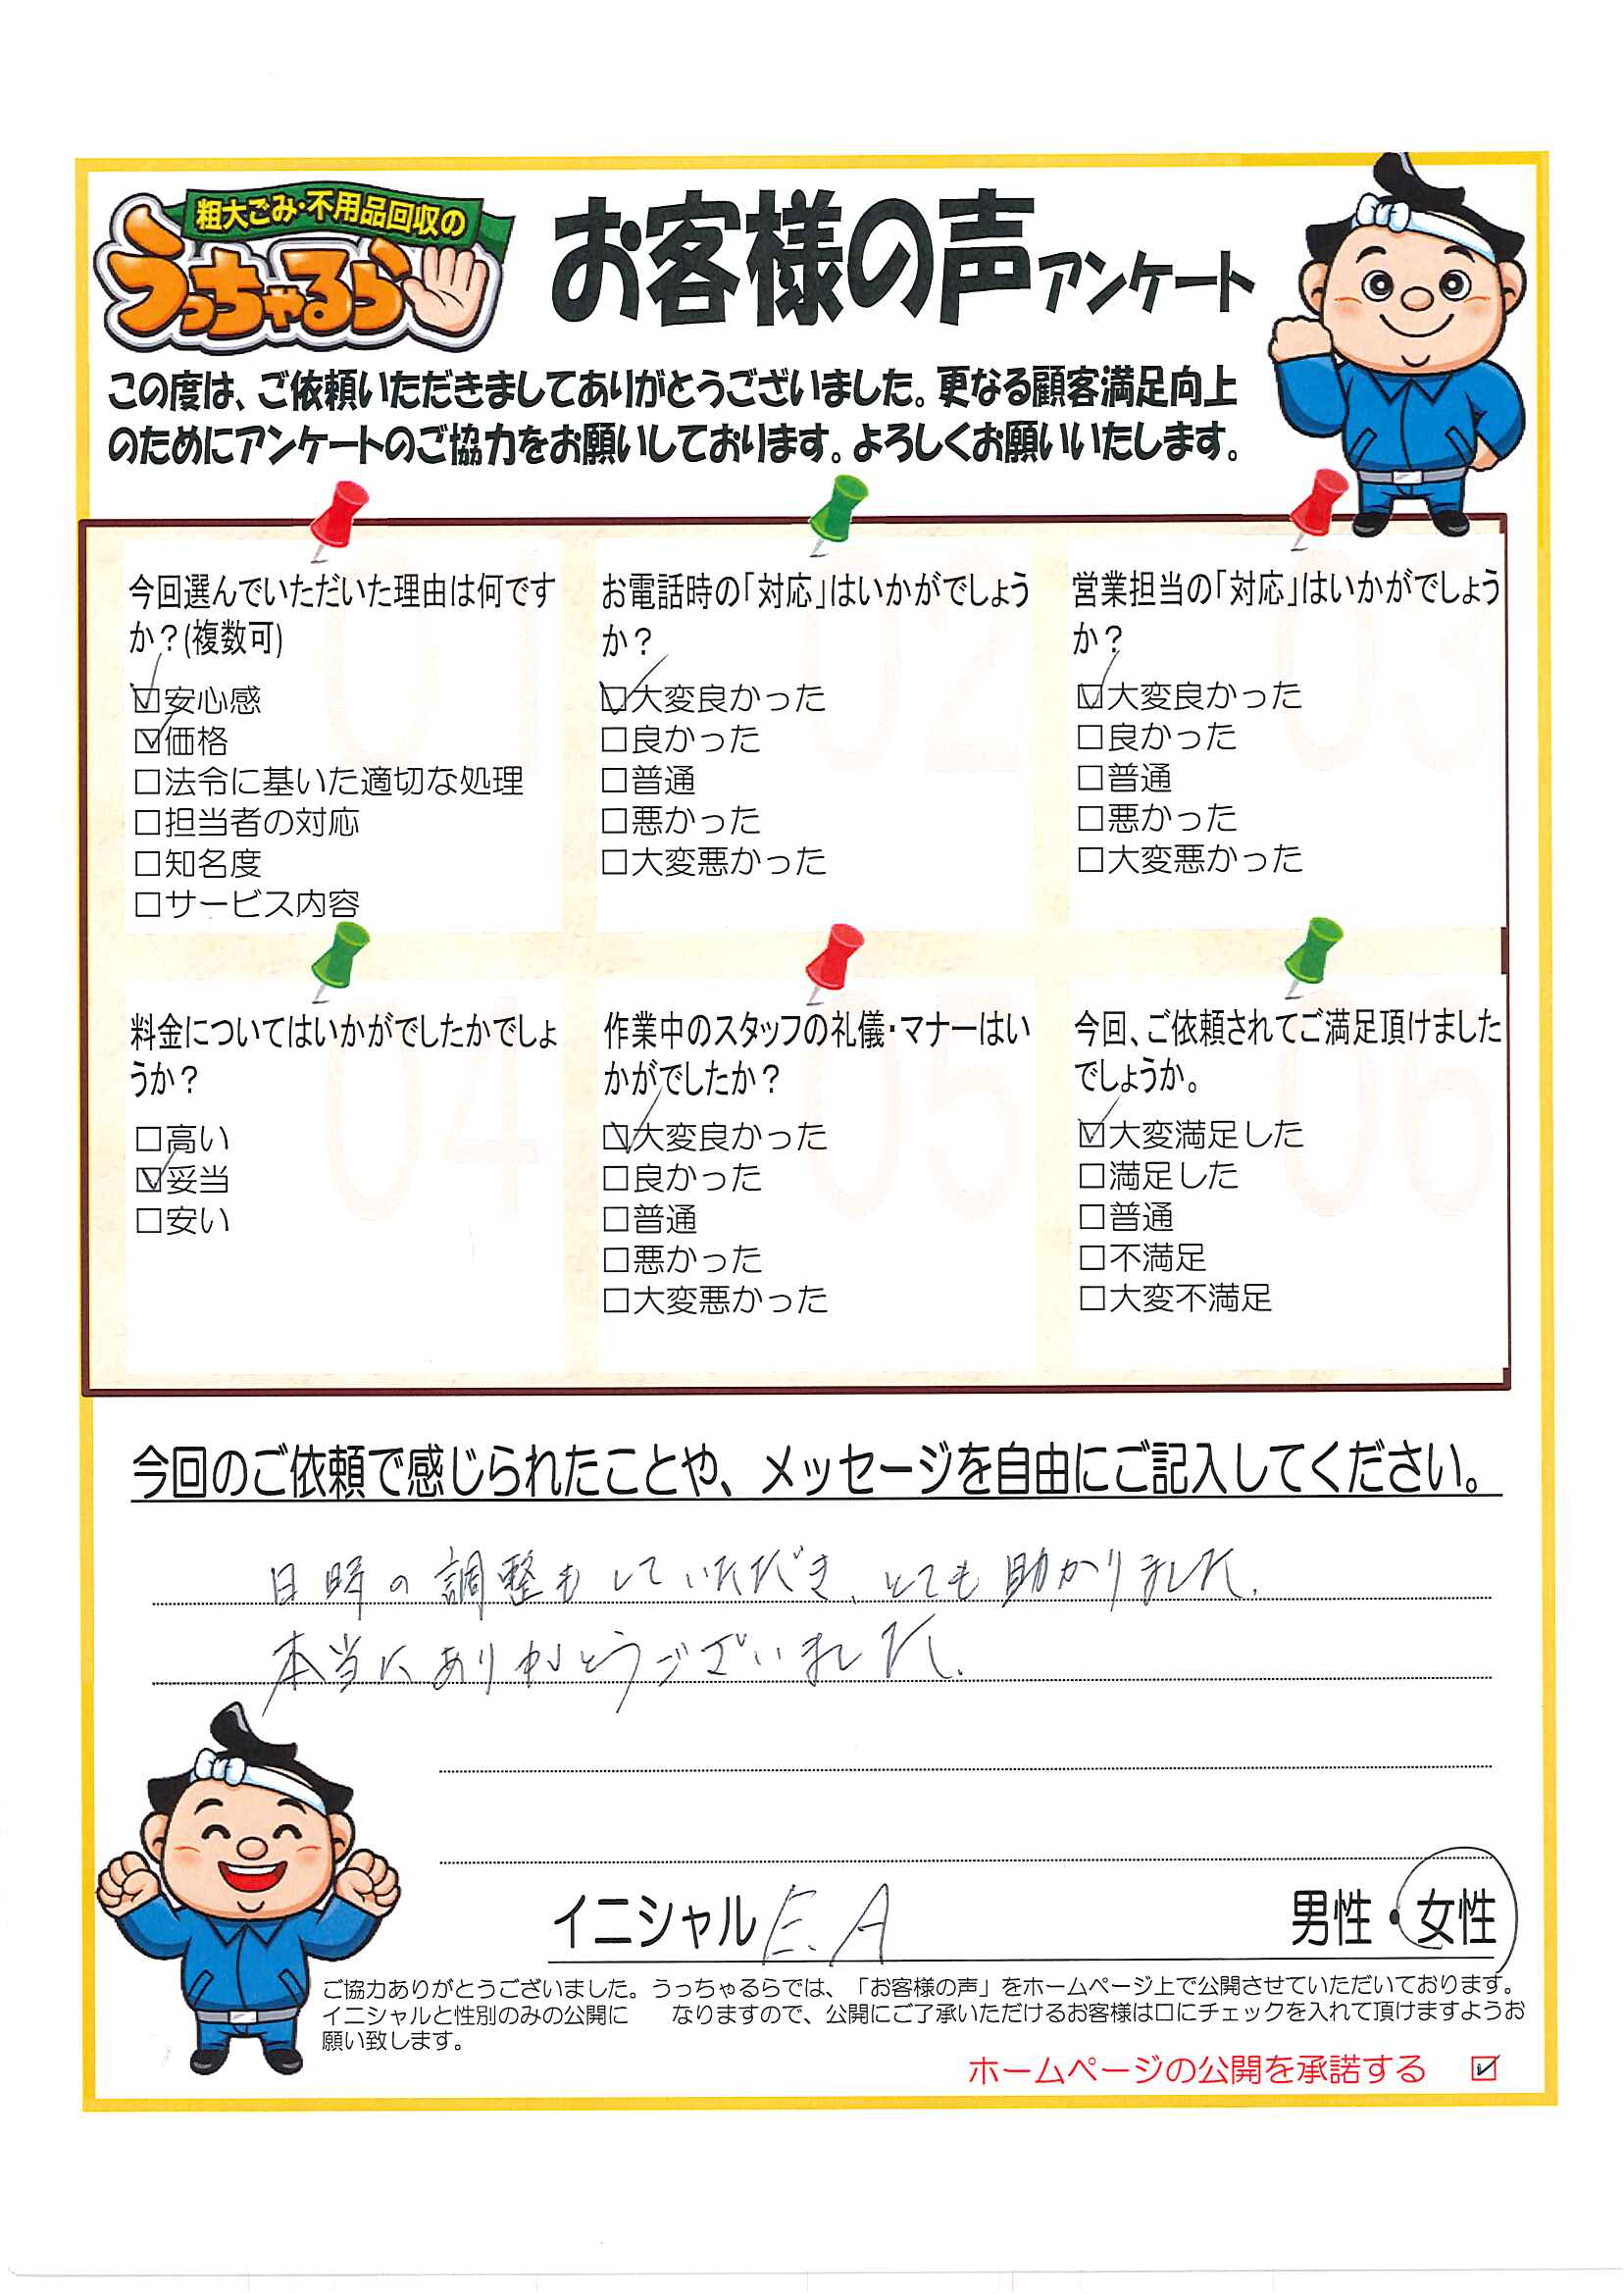 粗大ごみ・不用品回収の
うっちゃるら
お客様の声アンケート
この度は、ご依頼いただきましてありがとうございました。更なる顧客満足向上
のためにアンケートのご協力をお願いしております。よろしくお願いいたします。
今回選んでいただいた理由は何です
か？(複数可)
☑安心感
☑価格
□法令に基いた適切な処理
□担当者の対応
□知名度
□サービス内容
お電話時の「対応」はいかがでしょう
か？
☑大変良かった
□良かった
□普通
□悪かった
□大変悪かった
営業担当の「対応」はいかがでしょう
か？
☑大変良かった
□良かった
□普通
□悪かった
□大変悪かった
料金についてはいかがでしたかでしょ
うか？
□高い
☑妥当
□安い
作業中のスタッフの礼儀・マナーはい
かがでしたか？
☑大変良かった
□良かった
□普通
□悪かった
□大変悪かった
今回、ご依頼されてご満足頂けました
でしょうか。
☑大変満足した
□満足した
□普通
□不満足
□大変不満足
今回のご依頼で感じられたことや、メッセージを自由にご記入してください。
日時の調整もしていただき、とても助かりました。
本当にありがとうございました。
イニシャル E.A 男性・女性
ご協力ありがとうございました。うっちゃるらでは、「お客様の声」をホームページ上で公開させていただいております。
イニシャルと性別のみの公開に　なりますので、公開にご了承いただけるお客様は□にチェックを入れて頂けますようお
願い致します。
ホームページの公開を承諾する ☑